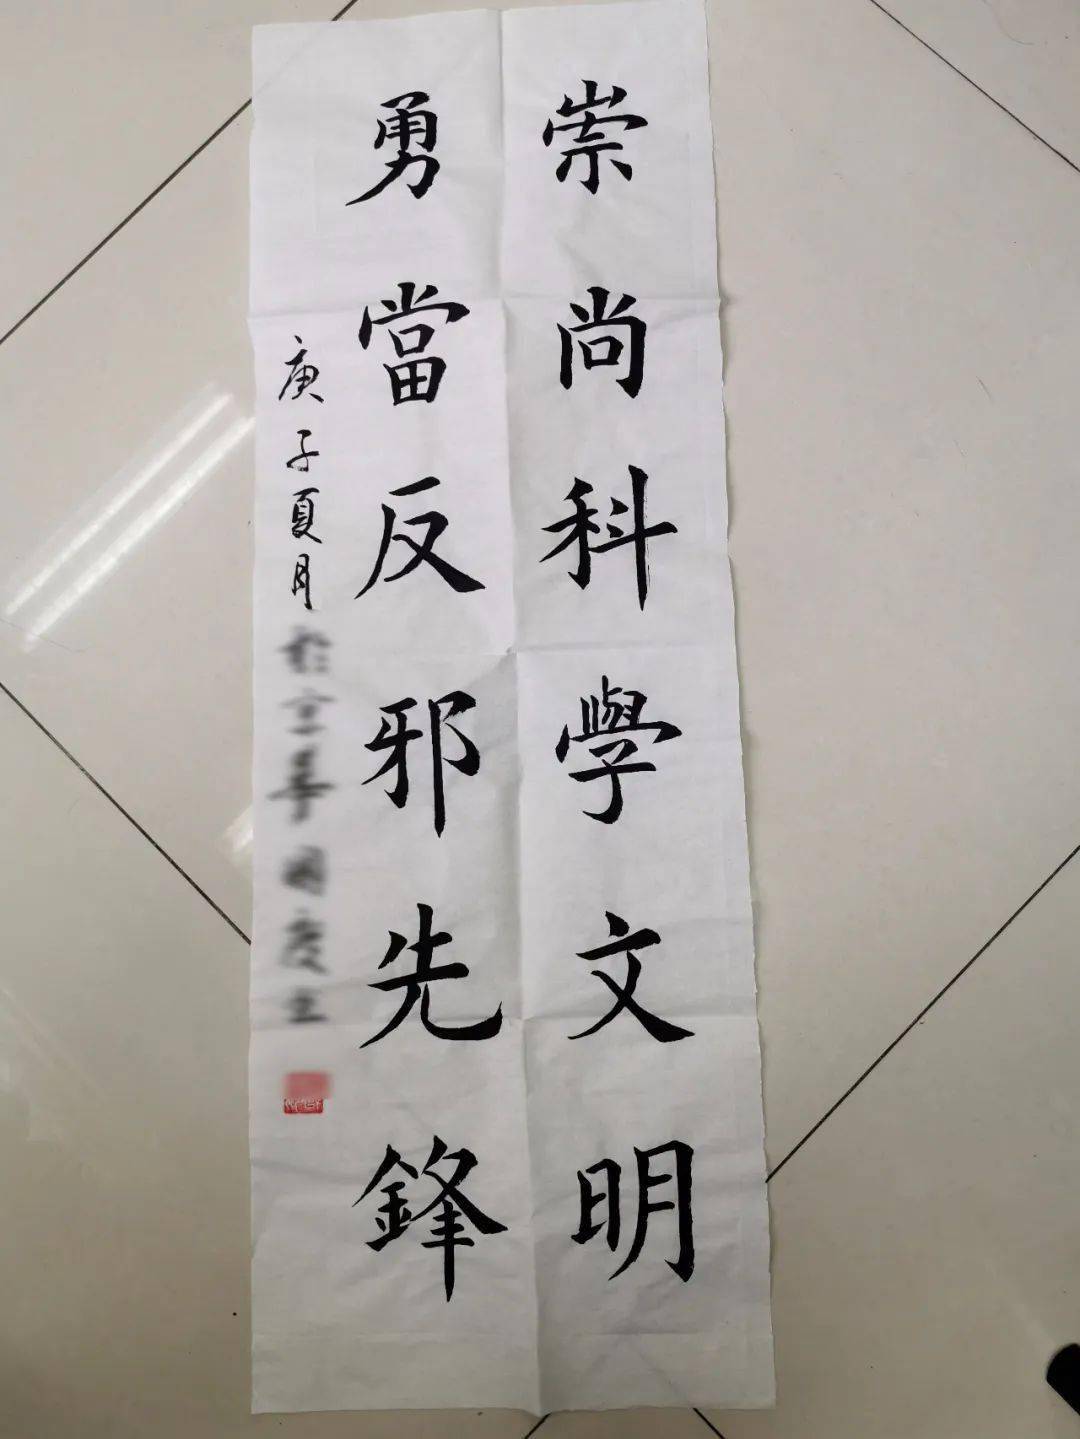 崇尚科學文明
勇當反邪先鋒
庚子夏月